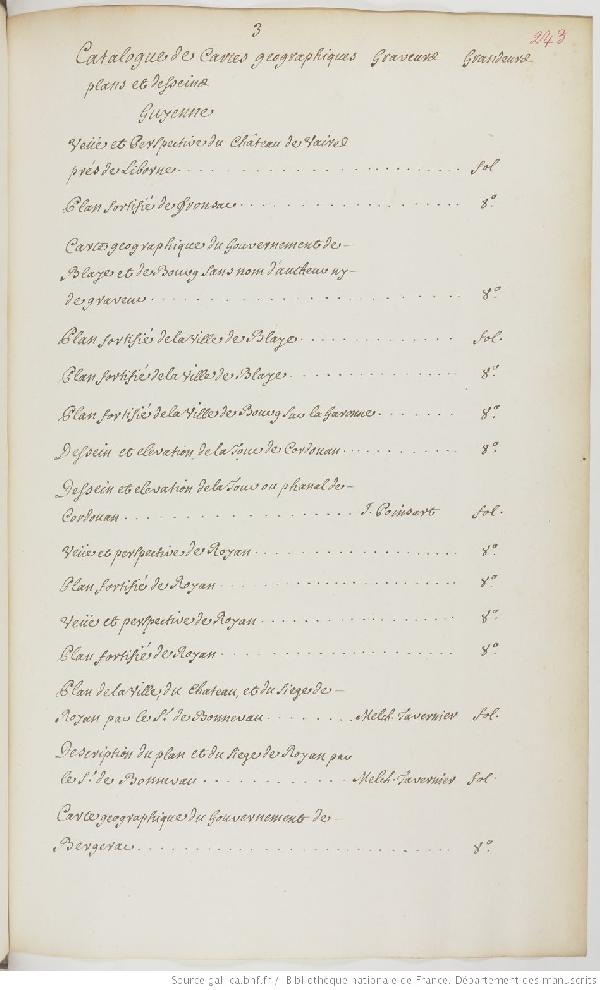 3
243
Catalogue de Cartes geographiques Graveurs Grandeurs
plans et desseins
Guyenne
Veüe et Perspective du Château de Vaires
prés de Liborne fol
Plan fortifié de Fronsac 8º
Carte geographique du Gouvernement de
Blaye et de Bourg sans nom d'autheur ny
de graveur 8º
Plan fortifié de la Ville de Blaye fol.
Plan fortifié de la Ville de Blaye 8º
Plan fortifié de la Ville de Bourg sur la Garonne 8º
Dessein et elevation de la Tour de Cordouan 8º
Dessein et elevation de la Tour ou phanal de
Cordouan J. Poinsart fol.
Veüe et perspective de Royan 8º
Plan fortifié de Royan 8º
Veüe et perspective de Royan 8º
Plan fortifié de Royan 8º
Plan de la Ville, du Chateau, et du siege de
Royan par le Sr. de Bonnevau Melch. Tavernier fol.
Description du plan et du siege de Royan par
le Sr. de Bonnevau Melch. Tavernier fol.
Carte geographique du Gouvernement de
Bergerac 8º
Source gallica.bnf.fr / Bibliothèque nationale de France. Département des manuscrits